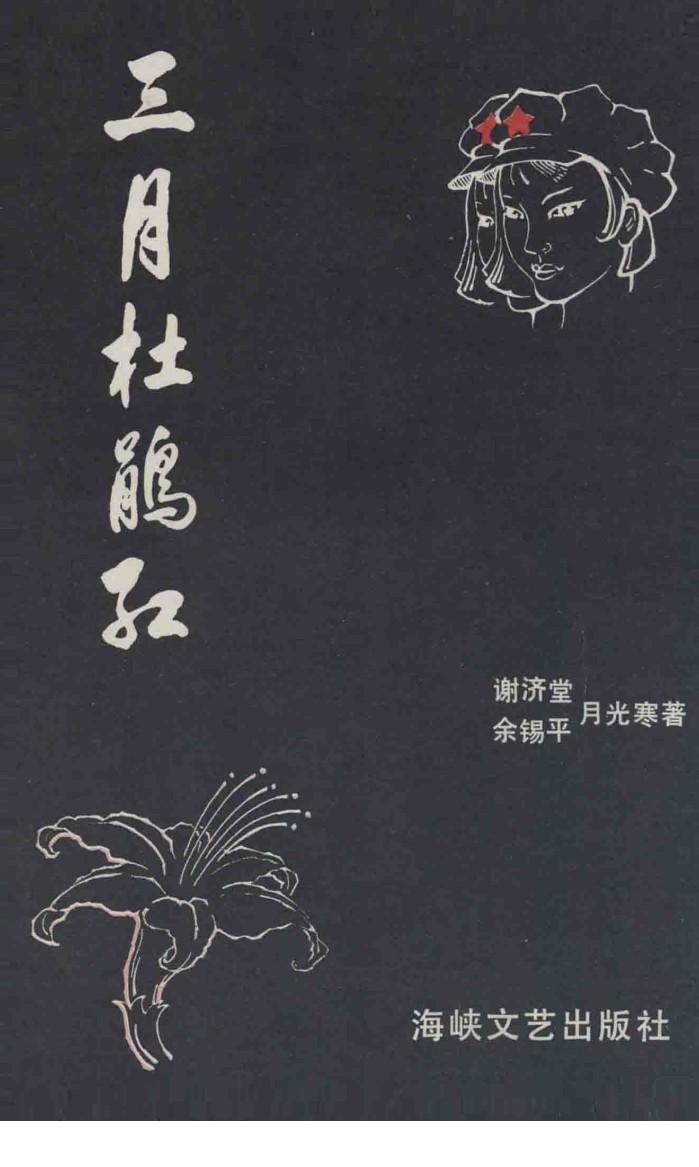 三月杜鹃红
谢济堂
余锡平
月光寒著
海峡文艺出版社